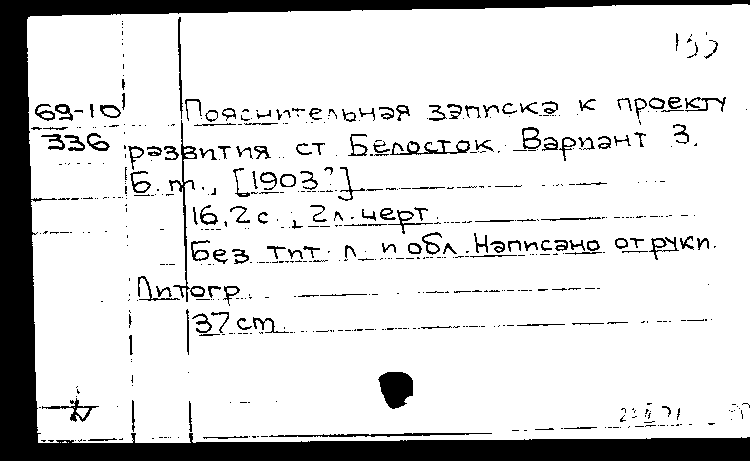 69-10 Пояснительная записка к проекту
336 развития ст Белосток. Вариант 3.
Б.т., [1903?]
16,2 с., 2 л. черт.
Без тит. л. и обл. Написано от руки.
Литогр.
37 cm.